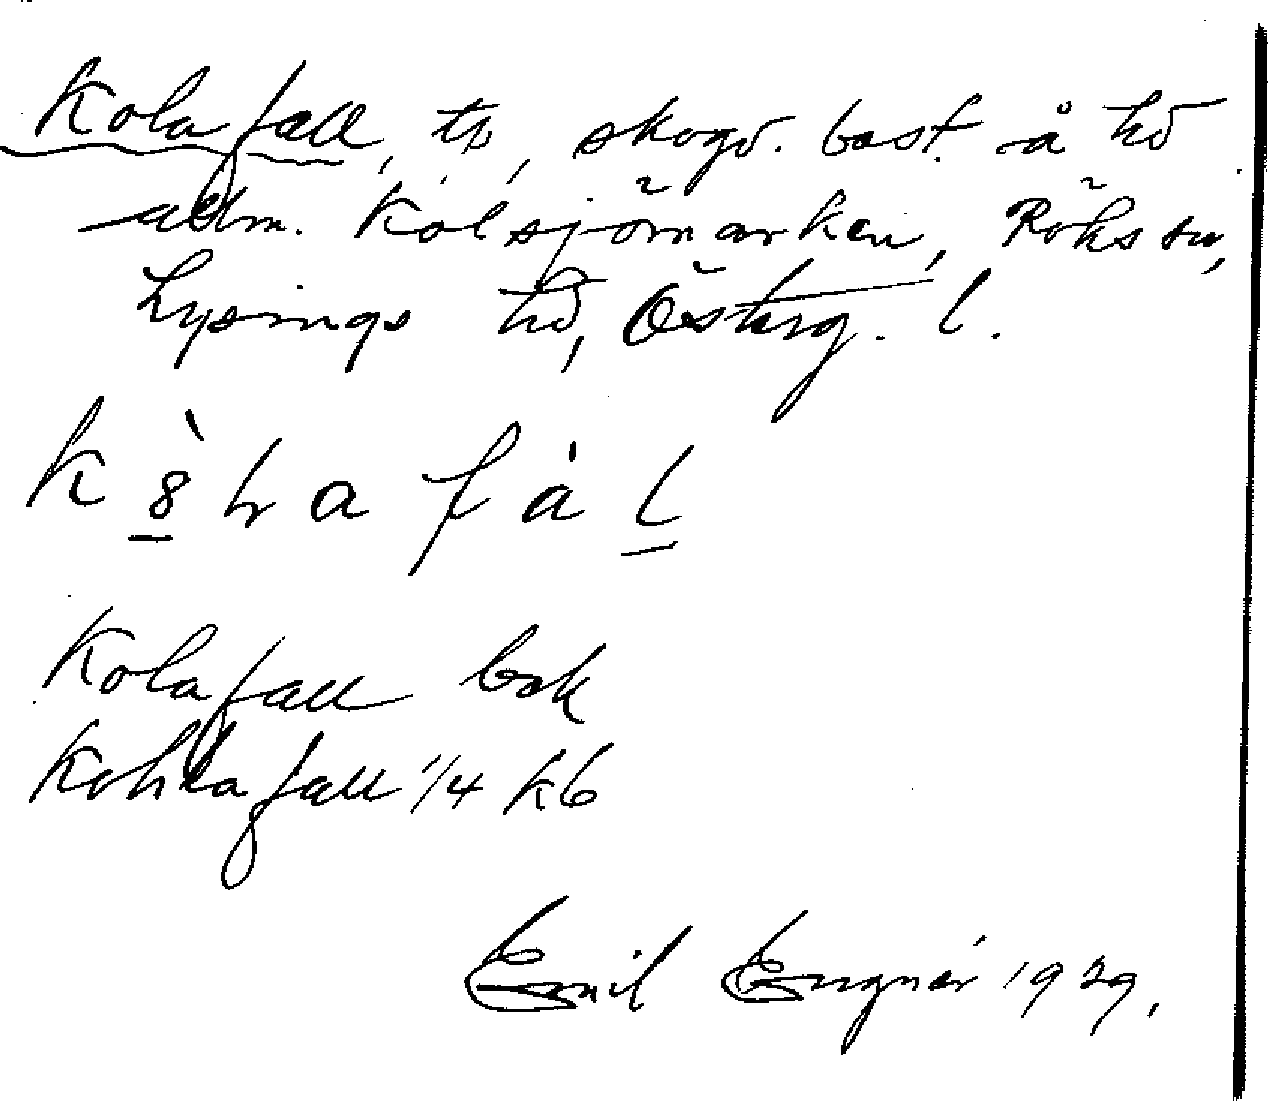 Kolafall, tp, skogv. bost. å hd
allm. Kolsjömarken, Röks sn,
Lysings hd, Österg. l.
k 8̀ l a f à l
Kolafall bok
Kohlafall 1/4 kb
Emil Engnér 1929.